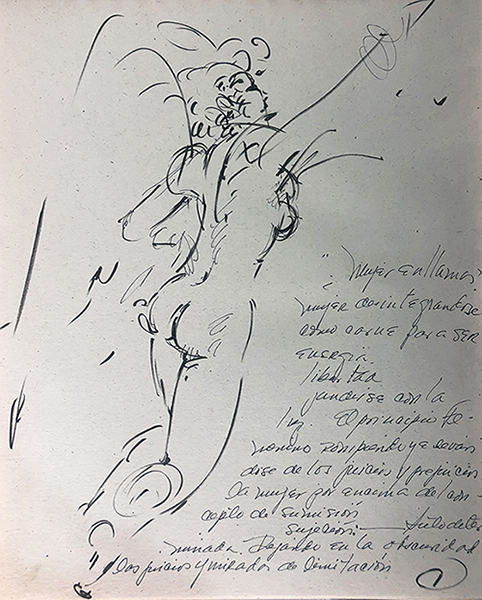 "Mujer en llamas"
mujer desintegrandose
como carne para SER
ENERGIA.
libertad
fundirse con la
luz. El principio fe-
menino rompiendo y
dose de los juicios y prejuicios
la mujer por encima del con-
cepto de sumisión
sujeción.
minada. Dejando en la obscuridad
los juicios y miradas de limitación